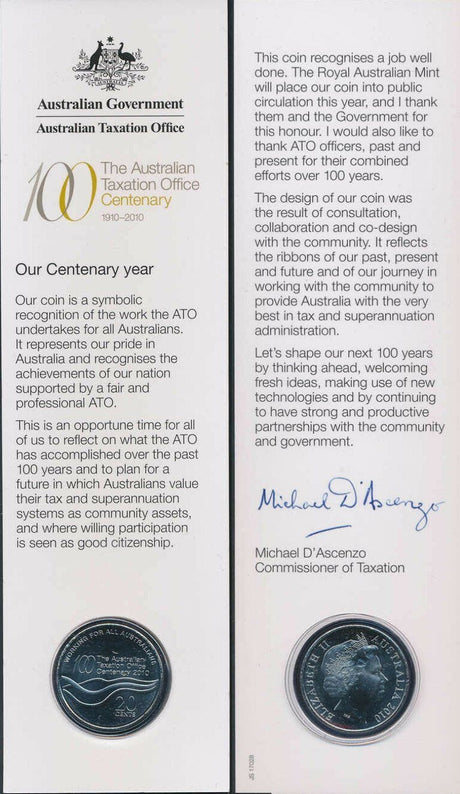 Australian Government
Australian Taxation Office
100 The Australian
Taxation Office
Centenary
1910–2010
Our Centenary year
Our coin is a symbolic
recognition of the work the ATO
undertakes for all Australians.
It represents our pride in
Australia and recognises the
achievements of our nation
supported by a fair and
professional ATO.
This is an opportune time for all
of us to reflect on what the ATO
has accomplished over the past
100 years and to plan for a
future in which Australians value
their tax and superannuation
systems as community assets,
and where willing participation
is seen as good citizenship.
WORKING FOR ALL AUSTRALIANS
100 The Australian
Taxation Office
Centenary 2010
20
CENTS
This coin recognises a job well
done. The Royal Australian Mint
will place our coin into public
circulation this year, and I thank
them and the Government for
this honour. I would also like to
thank ATO officers, past and
present for their combined
efforts over 100 years.
The design of our coin was
the result of consultation,
collaboration and co-design
with the community. It reflects
the ribbons of our past, present
and future and of our journey in
working with the community to
provide Australia with the very
best in tax and superannuation
administration.
Let's shape our next 100 years
by thinking ahead, welcoming
fresh ideas, making use of new
technologies and by continuing
to have strong and productive
partnerships with the community
and government.
Michael D'Ascenzo
Michael D'Ascenzo
Commissioner of Taxation
ELIZABETH II AUSTRALIA 2010
JS 17028